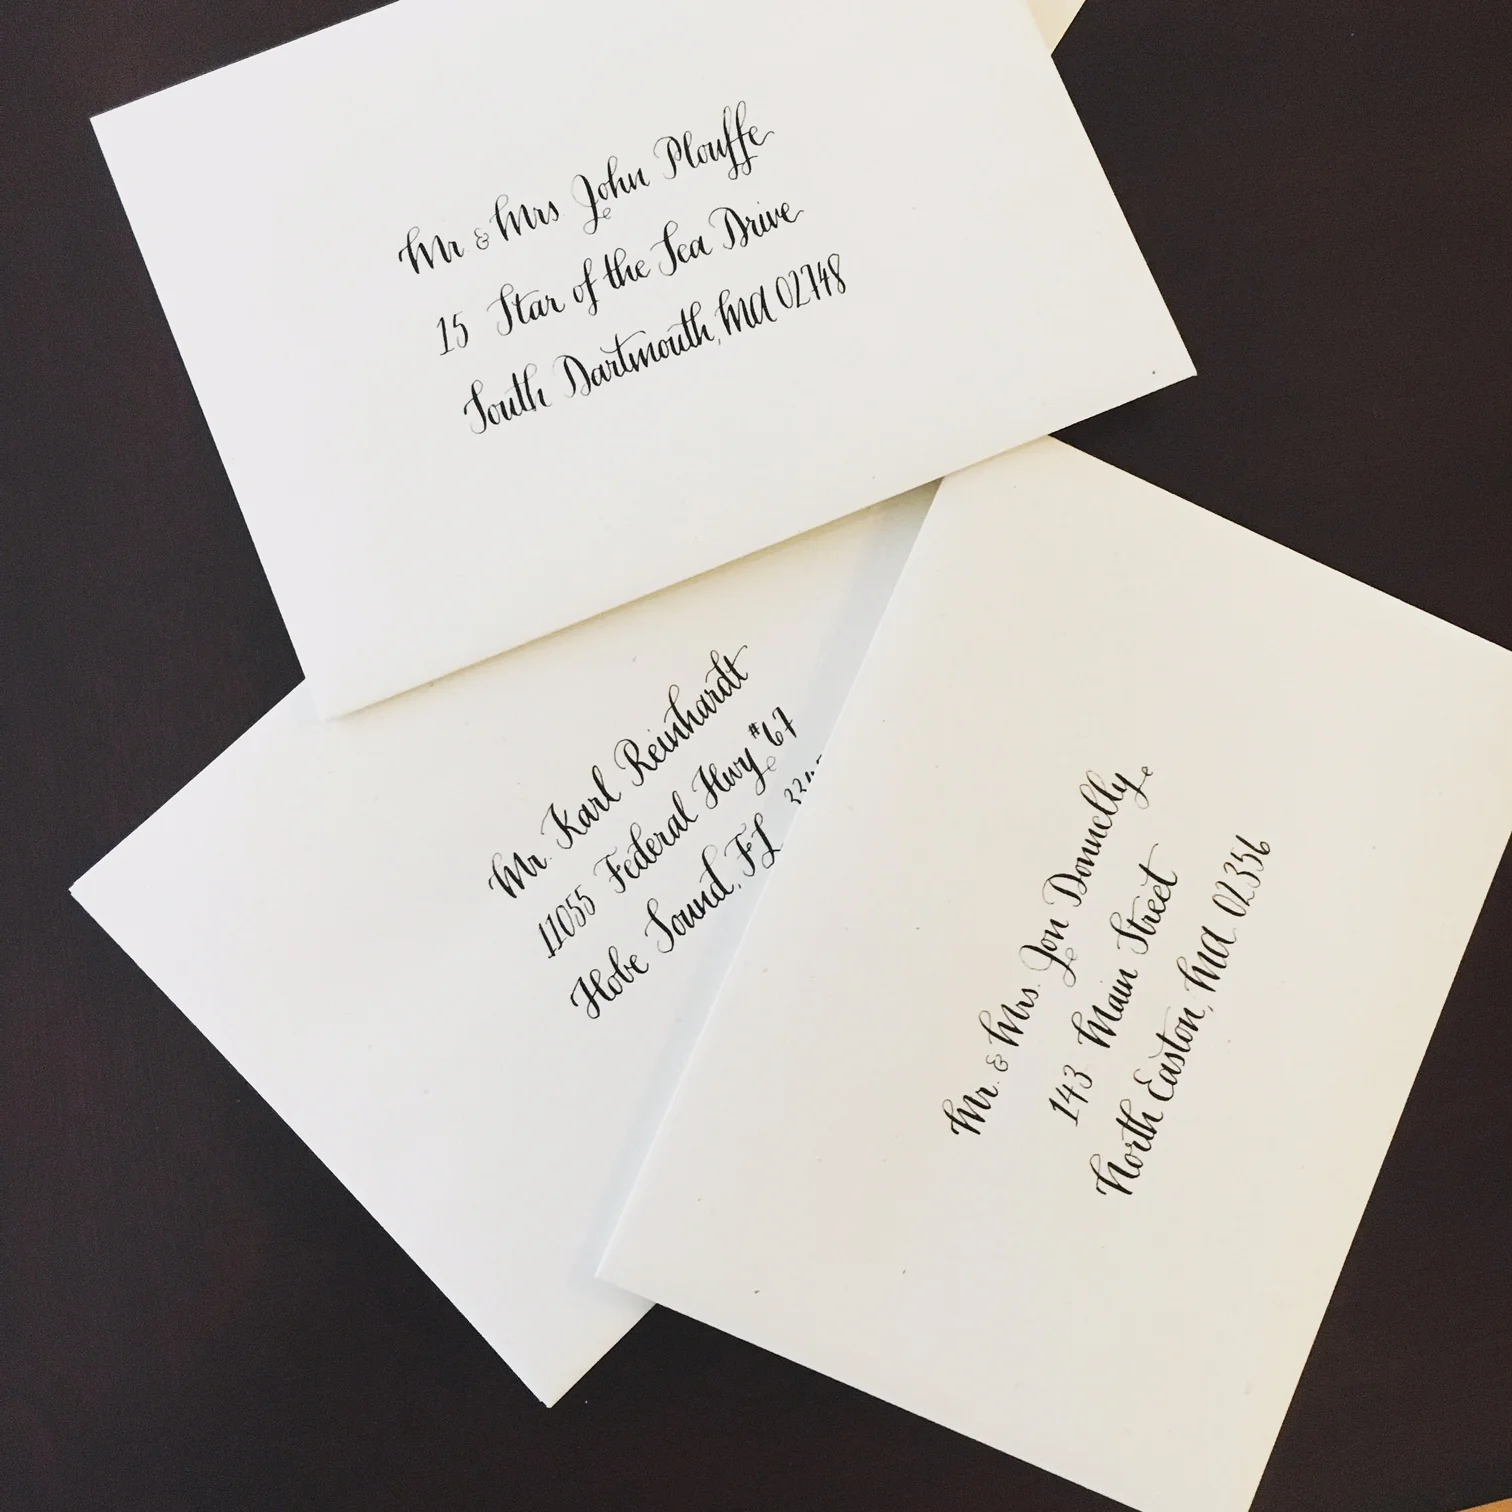 Mr & Mrs John Plouffe
15 Star of the Sea Drive
South Dartmouth, MA 02748
Mr. Karl Reinhardt
11055 Federal Hwy #67
Hobe Sound, FL
Mr. & Mrs. Jon Donnelly
143 Main Street
North Easton, MA 02356